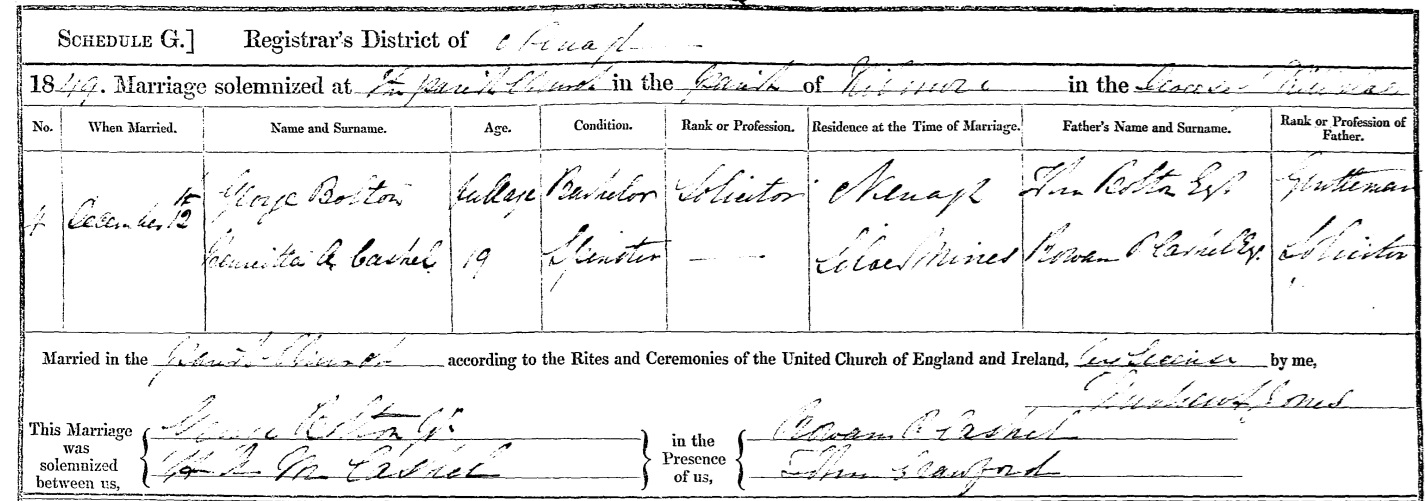 SCHEDULE G.] Registrar's District of Nenagh
1849. Marriage solemnized at the parish Church in the Parish of Kilmore in the Diocese Killaloe
No. When Married. Name and Surname. Age. Condition. Rank or Profession. Residence at the Time of Marriage. Father's Name and Surname. Rank or Profession of Father.
4 December 12th George Bolton full age Bachelor Solicitor Nenagh John Bolton Esqr. Gentleman
Henrietta A Cashel 19 Spinster — — Silver Mines Rowan P Cashel Esq. Solicitor
Married in the Parish Church according to the Rites and Ceremonies of the United Church of England and Ireland, by License by me,
Jones
This Marriage was solemnized between us, George Bolton Jr in the Presence of us, Rowan P Cashel
Cashel John Crawford